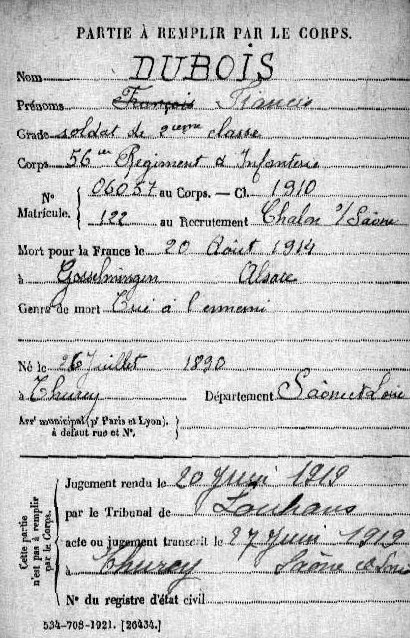 PARTIE À REMPLIR PAR LE CORPS.
Nom DUBOIS
Prénoms François Francis
Grade soldat de 2ième classe
Corps 56me Régiment d'Infanterie
N° Matricule. { 06057 au Corps. — Cl. 1910
122 au Recrutement Chalon s/Saône
Mort pour la France le 20 Août 1914
à Gosselmingen Alsace
Genre de mort Tué à l'ennemi
Né le 26 Juillet 1890
à Thurey Département Saône et Loire
Arrt municipal (pr Paris et Lyon), à défaut rue et N°.
Cette partie n'est pas à remplir par le Corps.
Jugement rendu le 20 Juin 1919
par le Tribunal de Louhans
acte ou jugement transcrit le 27 Juin 1919
à Thurey Saône et Loire
N° du registre d'état civil
534-708-1921. [26434.]